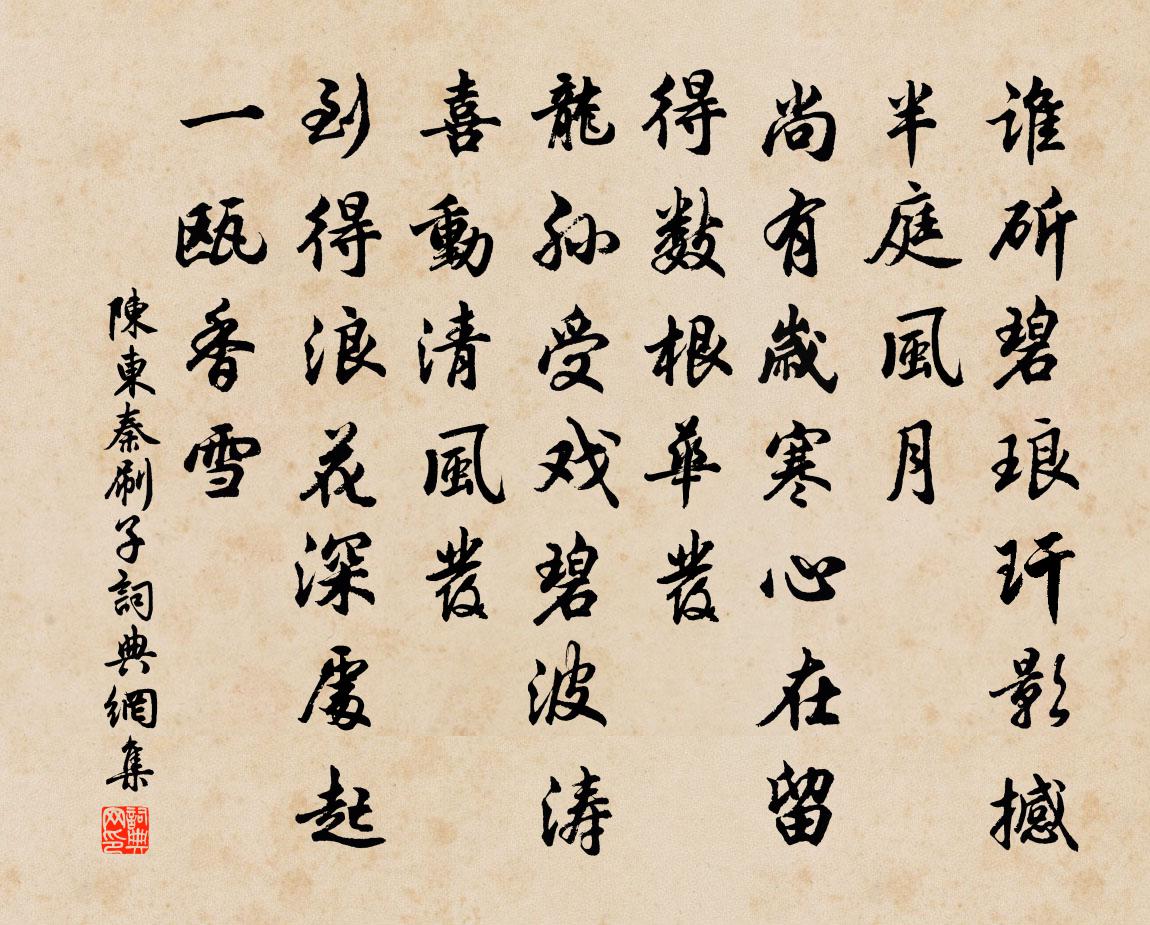 谁斫碧琅玕影撼
半庭風月
尚有歲寒心在留
得数根華發
龍孙受戏碧波涛
喜動清風發
到得浪花深處起
一瓯香雪
陳東秦刷子詞典網集
詞典网印